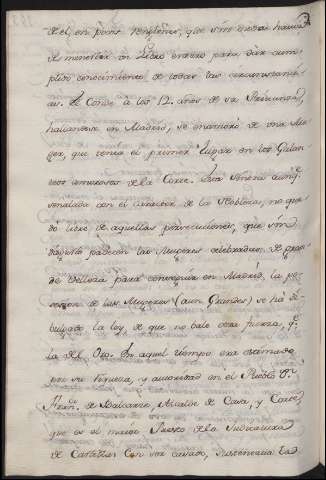 de el en pocos renglones, que sin duda havia
de menester un Libro entero para dar cum
plido conocimiento de todas las circunstanci
as. El Conde à los 12 años de su
hallandose en Madrid, se enamorò de una Mu
ger, que tenia el primer Lugar en los Galan
teos amorosos de la Corte. Esta Señora aunq.e
señalada con el caracter de la Nobleza, no que
dò libre de aquellas persecuciones, que sin
disgusto padecen las Mugeres celebradas de gran
de Belleza para conseguir en Madrid, la po
sesion de las Mugeres (aun Grandes) se há di
bulgado la ley, de que no vale otra fuerza, q.e
la del Oro. En aquel tiempo era estimado
por su riqueza, y autoridad en el Pueblo D.n
Fran.co de Balcarze, Alcalde de Casa, y Corte,
que es el maior Puesto de la Judicatura
de Castilla: Con ser casado, sustentaba la